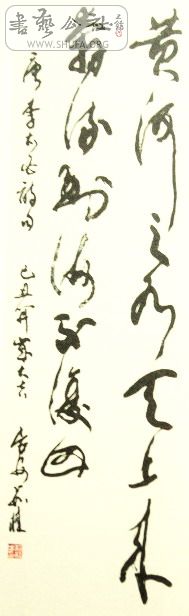 書藝公社
WWW.SHUFA.ORG
黄河之水天上来
奔流到海不復回
唐李太白詩句
己丑年
大吉